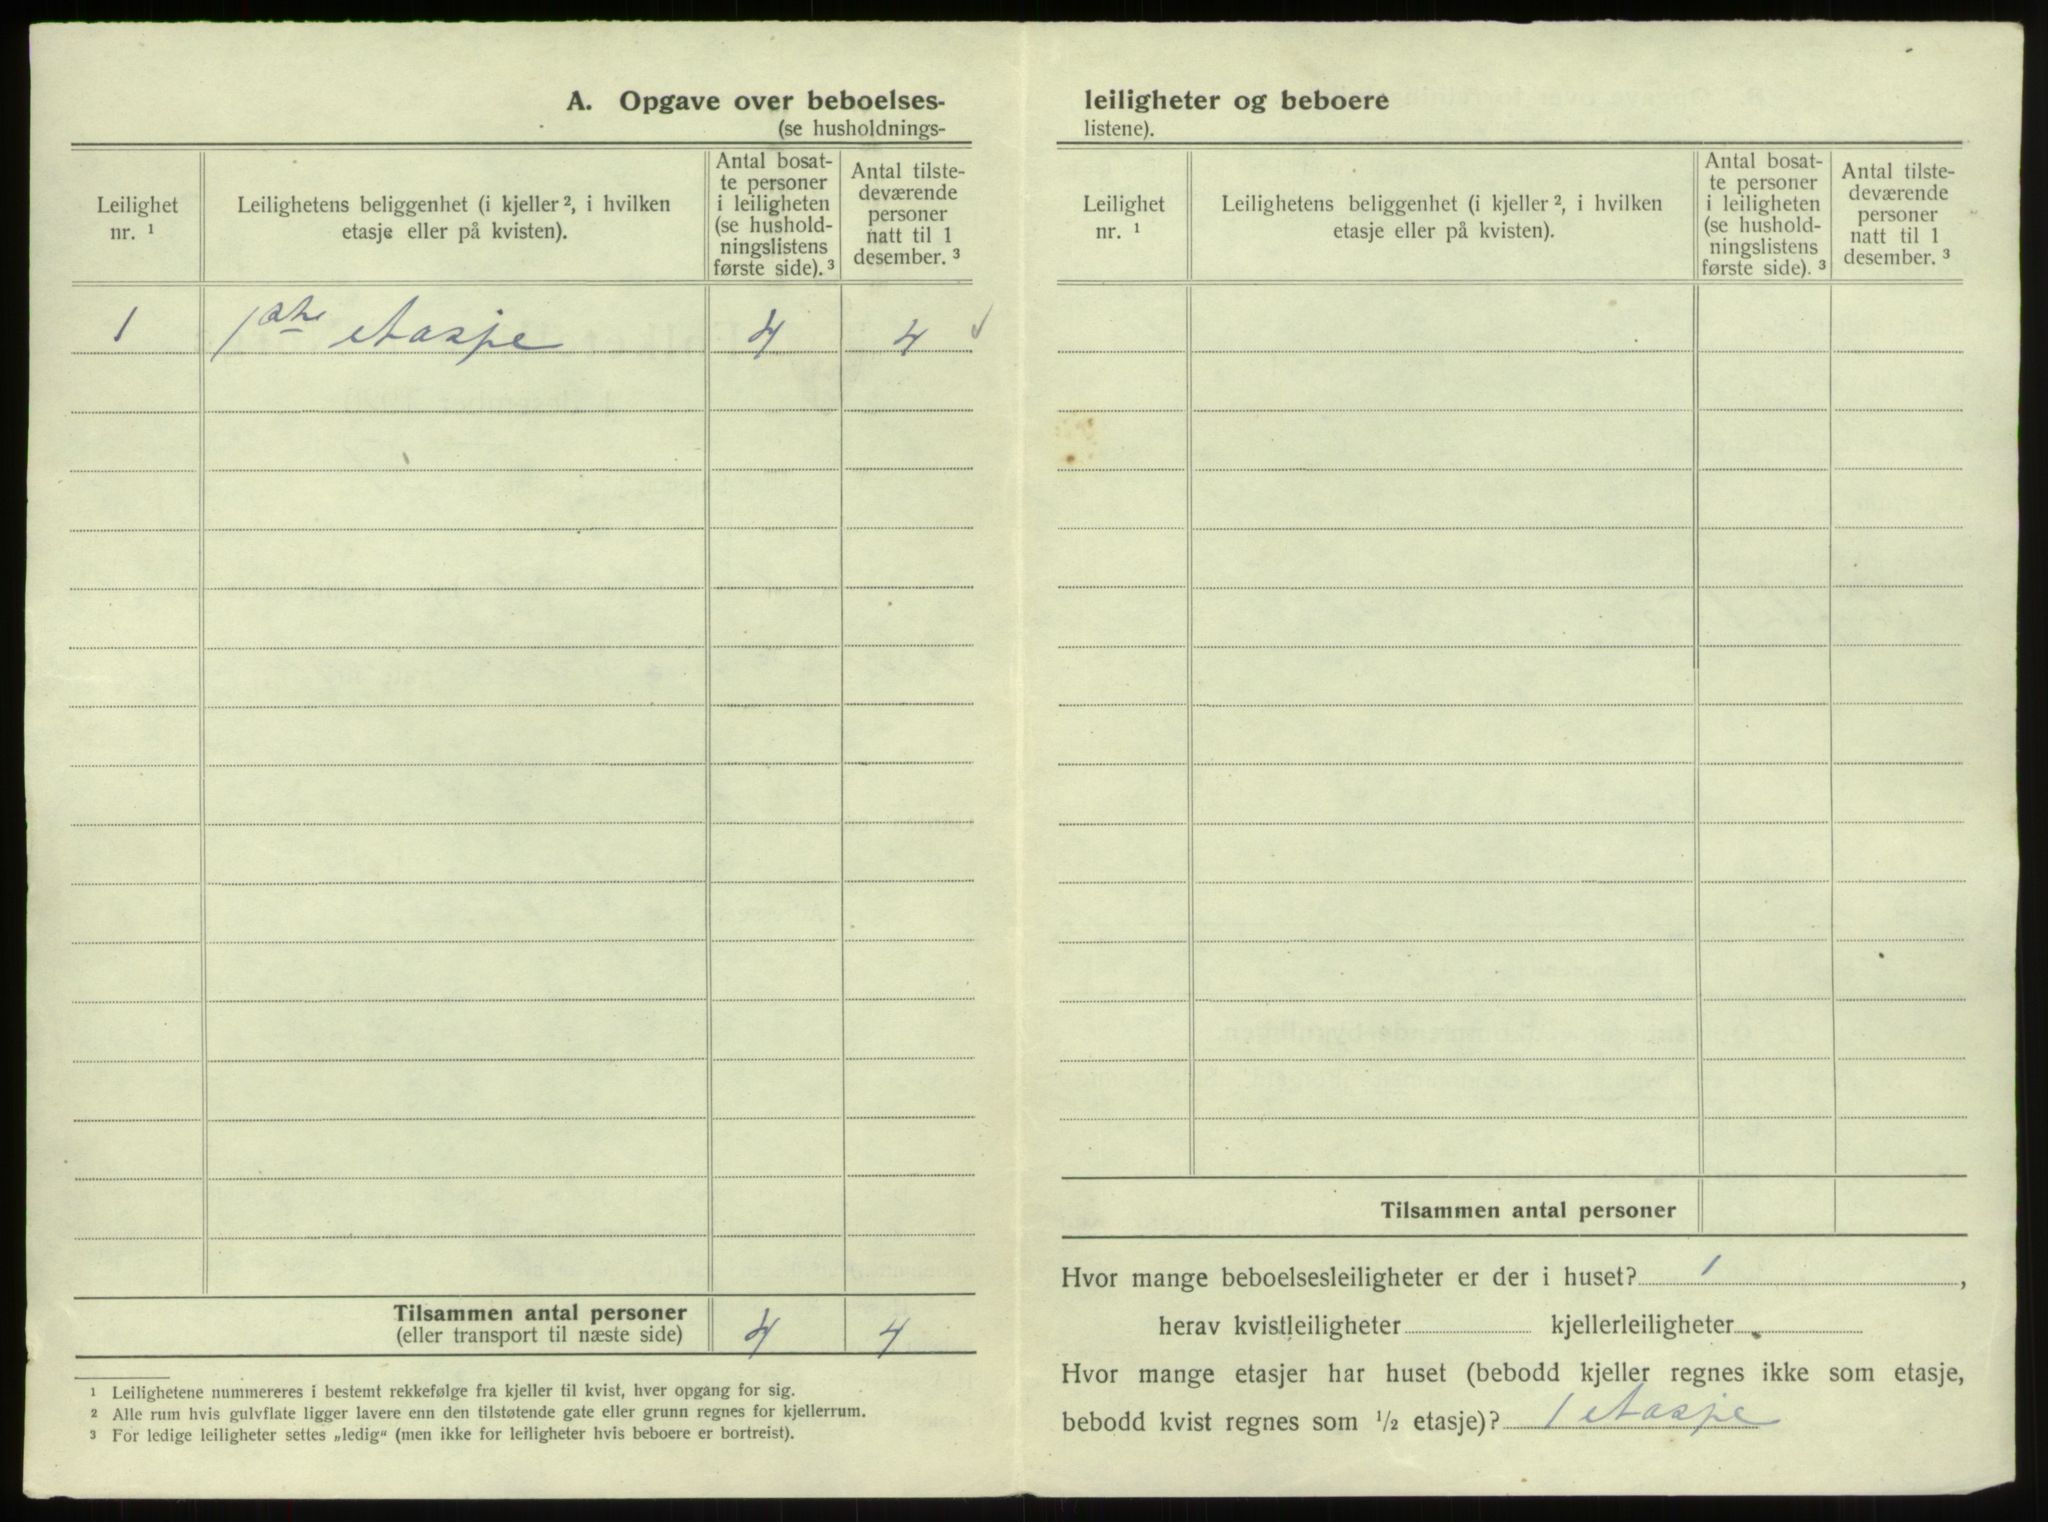 A. Opgave over beboelses-
(se husholdnings-
Leilighet
nr. ¹
Leilighetens beliggenhet (i kjeller ², i hvilken
etasje eller på kvisten).
Antal bosat-
te personer
i leiligheten
(se hushold-
ningslistens
første side). ³
Antal tilste-
deværende
personer
natt til 1
desember. ³
1
etasje
4
4
Tilsammen antal personer
(eller transport til næste side)
4
4
¹ Leilighetene nummereres i bestemt rekkefølge fra kjeller til kvist, hver opgang for sig.
² Alle rum hvis gulvflate ligger lavere enn den tilstøtende gate eller grunn regnes for kjellerrum.
³ For ledige leiligheter settes „ledig“ (men ikke for leiligheter hvis beboere er bortreist).
leiligheter og beboere
listene).
Leilighet
nr. ¹
Leilighetens beliggenhet (i kjeller ², i hvilken
etasje eller på kvisten).
Antal bosat-
te personer
i leiligheten
(se hushold-
ningslistens
første side). ³
Antal tilste-
deværende
personer
natt til 1
desember. ³
Tilsammen antal personer
Hvor mange beboelsesleiligheter er der i huset? 1 ,
herav kvistleiligheter kjellerleiligheter
Hvor mange etasjer har huset (bebodd kjeller regnes ikke som etasje,
bebodd kvist regnes som ½ etasje)? 1 etasje